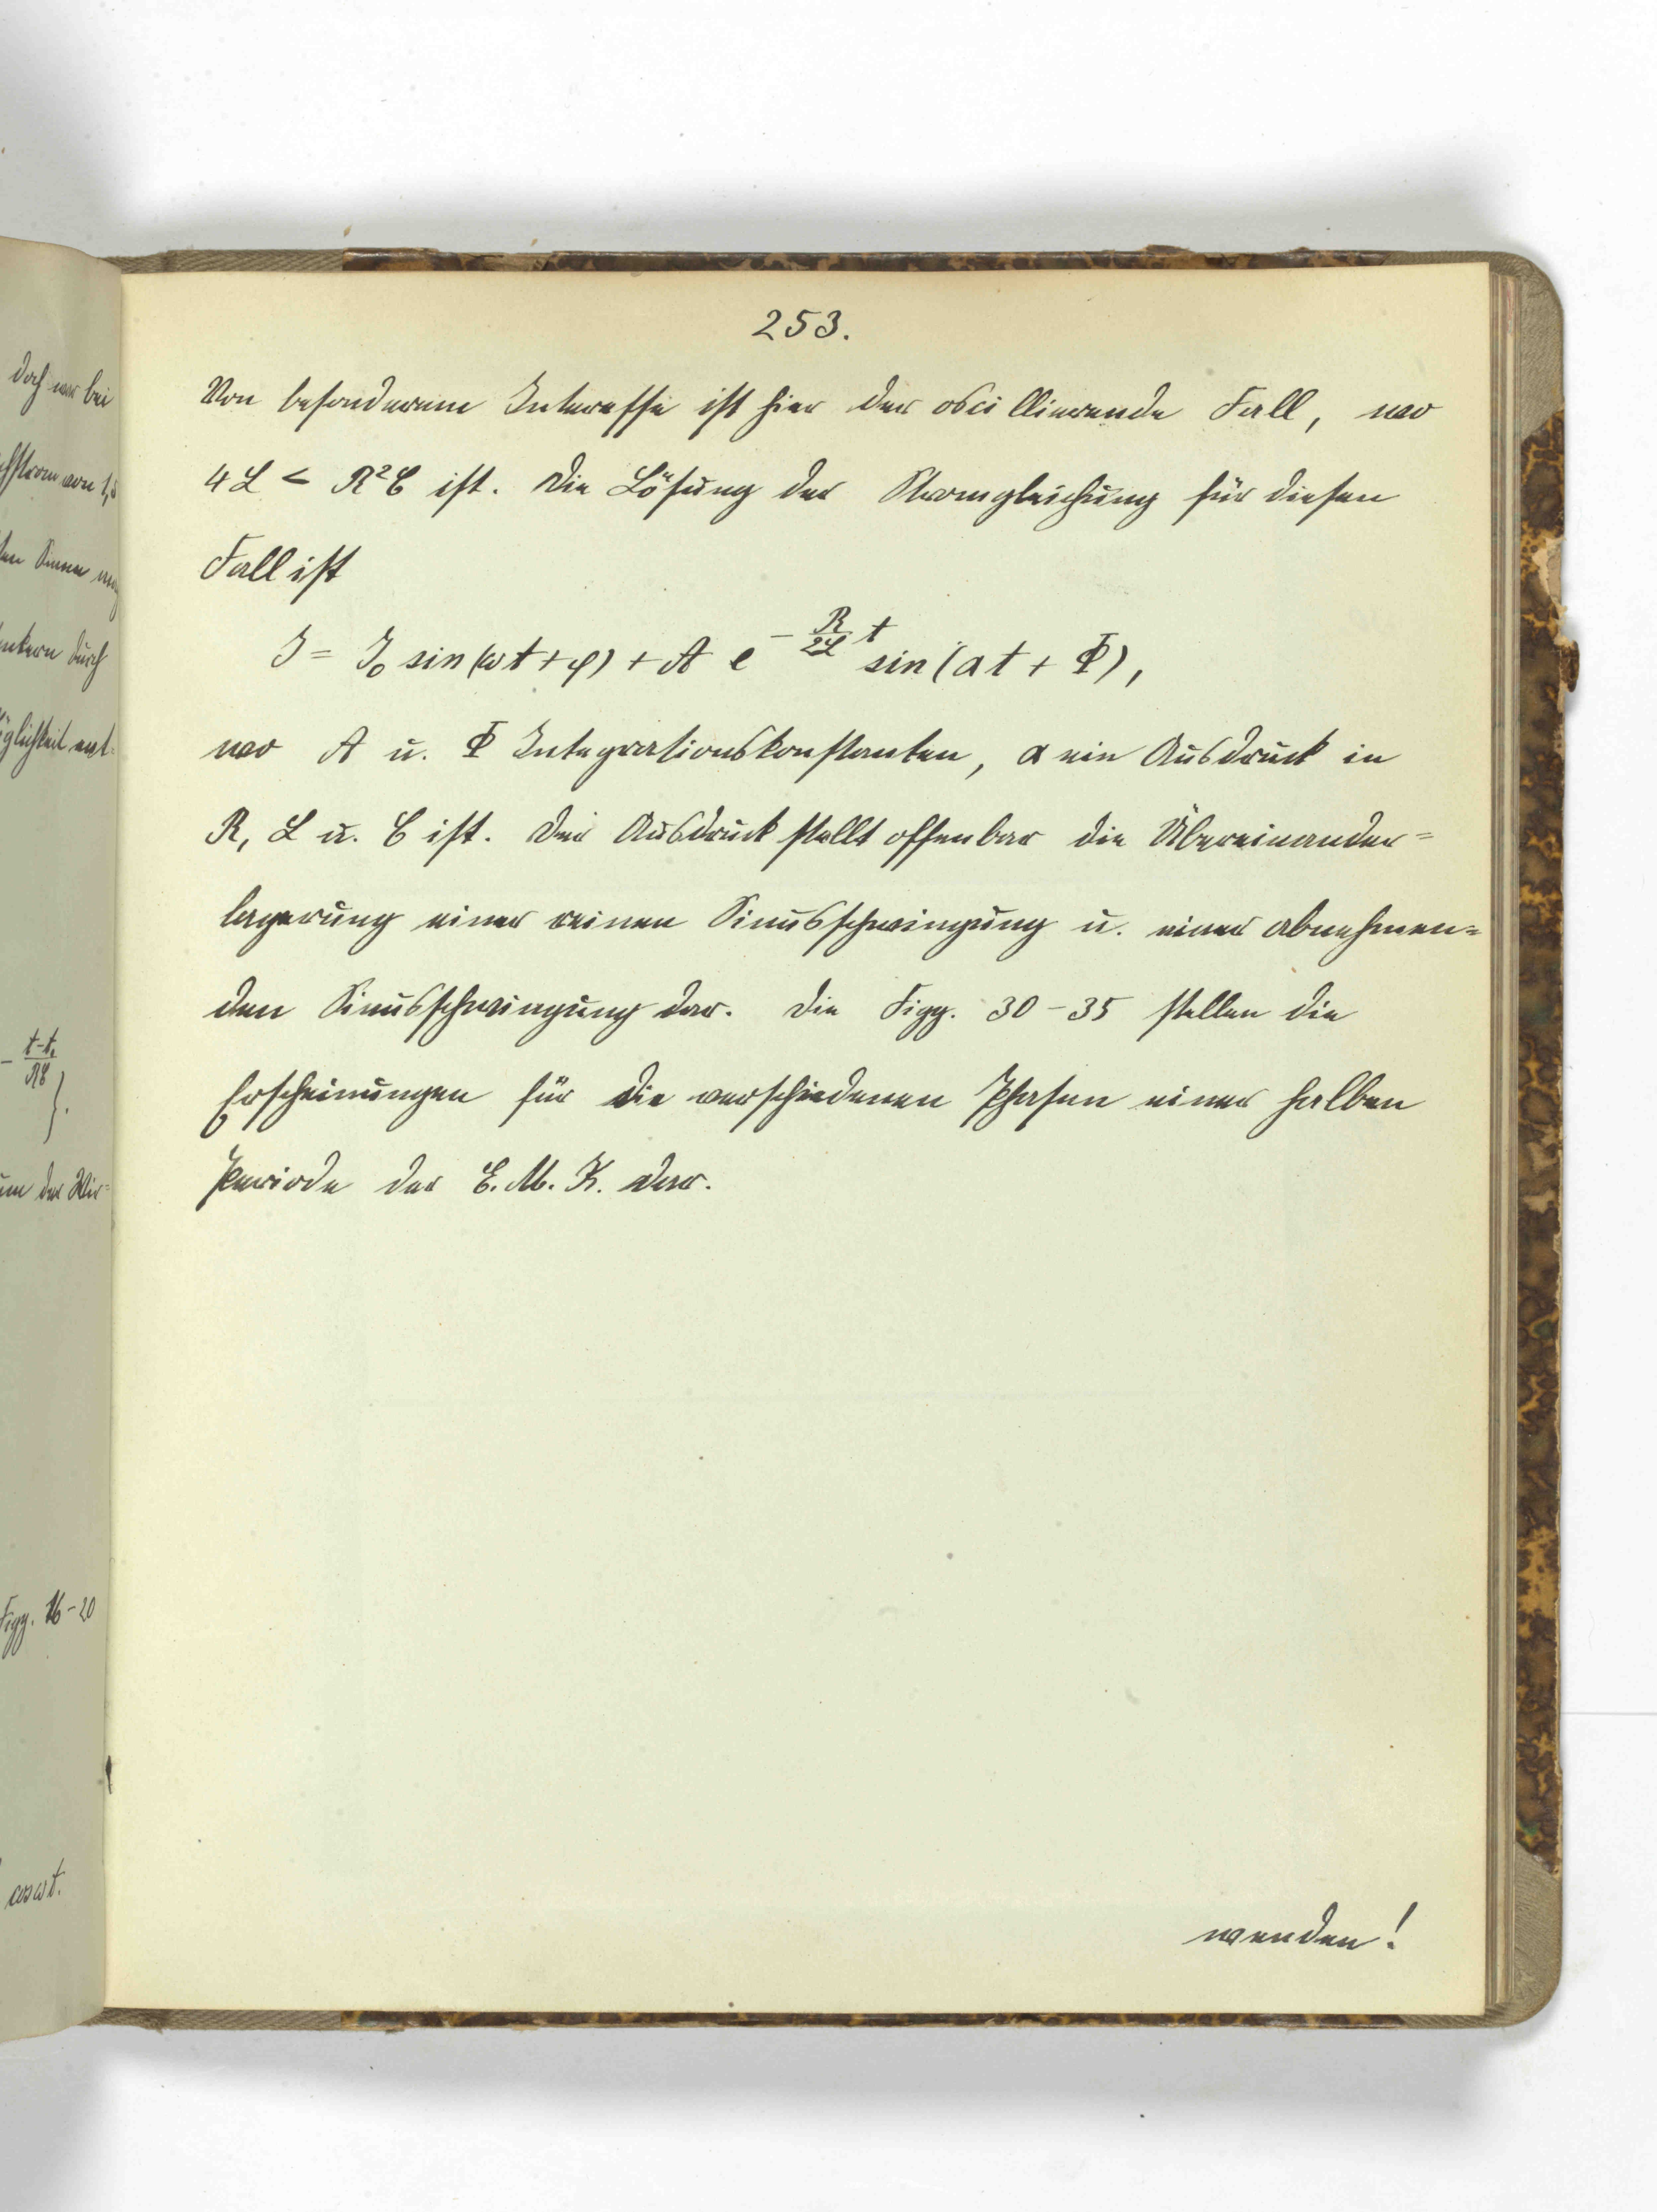 253.
Von besonderem Interesse ist hier der oscillierende Fall, wo
4L < R²C ist. Die Lösung der Stromgleichung für diesen
Fall ist
J = J₀ sin(ωt+φ) + A e^{-\frac{R}{2L}t} sin(at + Φ),
wo A u. Φ Integrationskonstanten, a ein Ausdruck in
R, L u. C ist. Der Ausdruck stellt offenbar die Übereinander=
lagerung einer reinen Sinusschwingung u. einer abnehmen=
den Sinusschwingung dar. Die Figg. 30-35 stellen die
Erscheinungen für die verschiedenen Phasen einer halben
Periode der E.M.K. dar.
wenden!
doch nur bei
von 1,5
durch
öglichkeit ent=
- \frac{t-t₁}{RC} }.
um der Wir=
Figg. 16-20
cos ωt.